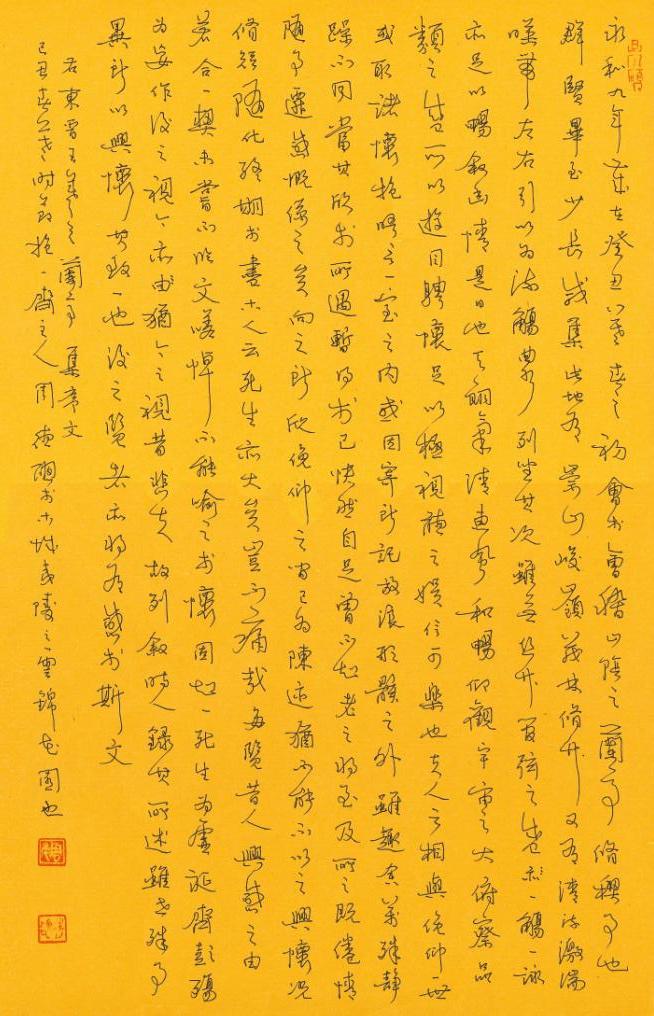 永和九年歳在癸丑暮春之初會於會稽山陰之蘭亭脩禊事也
群賢畢至少長咸集此地有崇山峻嶺茂林脩竹又有清流激湍
暎帶左右引以為流觴曲水列坐其次雖無絲竹管弦之盛一觴一詠
亦足以暢敘幽情是日也天朗氣清惠風和暢仰觀宇宙之大俯察品
類之盛所以遊目騁懷足以極視聽之娛信可樂也夫人之相與俯仰一世
或取諸懷抱晤言一室之內或因寄所託放浪形骸之外雖趣舍萬殊靜
躁不同當其欣於所遇暫得於己快然自足曾不知老之將至及所之既倦情
隨事遷感慨係之矣向之所欣俛仰之間已為陳迹猶不能不以之興懷況
脩短隨化終期於盡古人云死生亦大矣豈不痛哉每覽昔人興感之由
若合一契未嘗不臨文嗟悼不能喻之於懷固知一死生為虛誕齊彭殤
為妄作後之視今亦由今之視昔悲夫故列敘時人錄其所述雖世殊事
異所以興懷其致一也後之覽者亦將有感於斯文
右東晉王羲之蘭亭集序文
己丑春之時節抱一齋主人周於古城之雲錦花園也